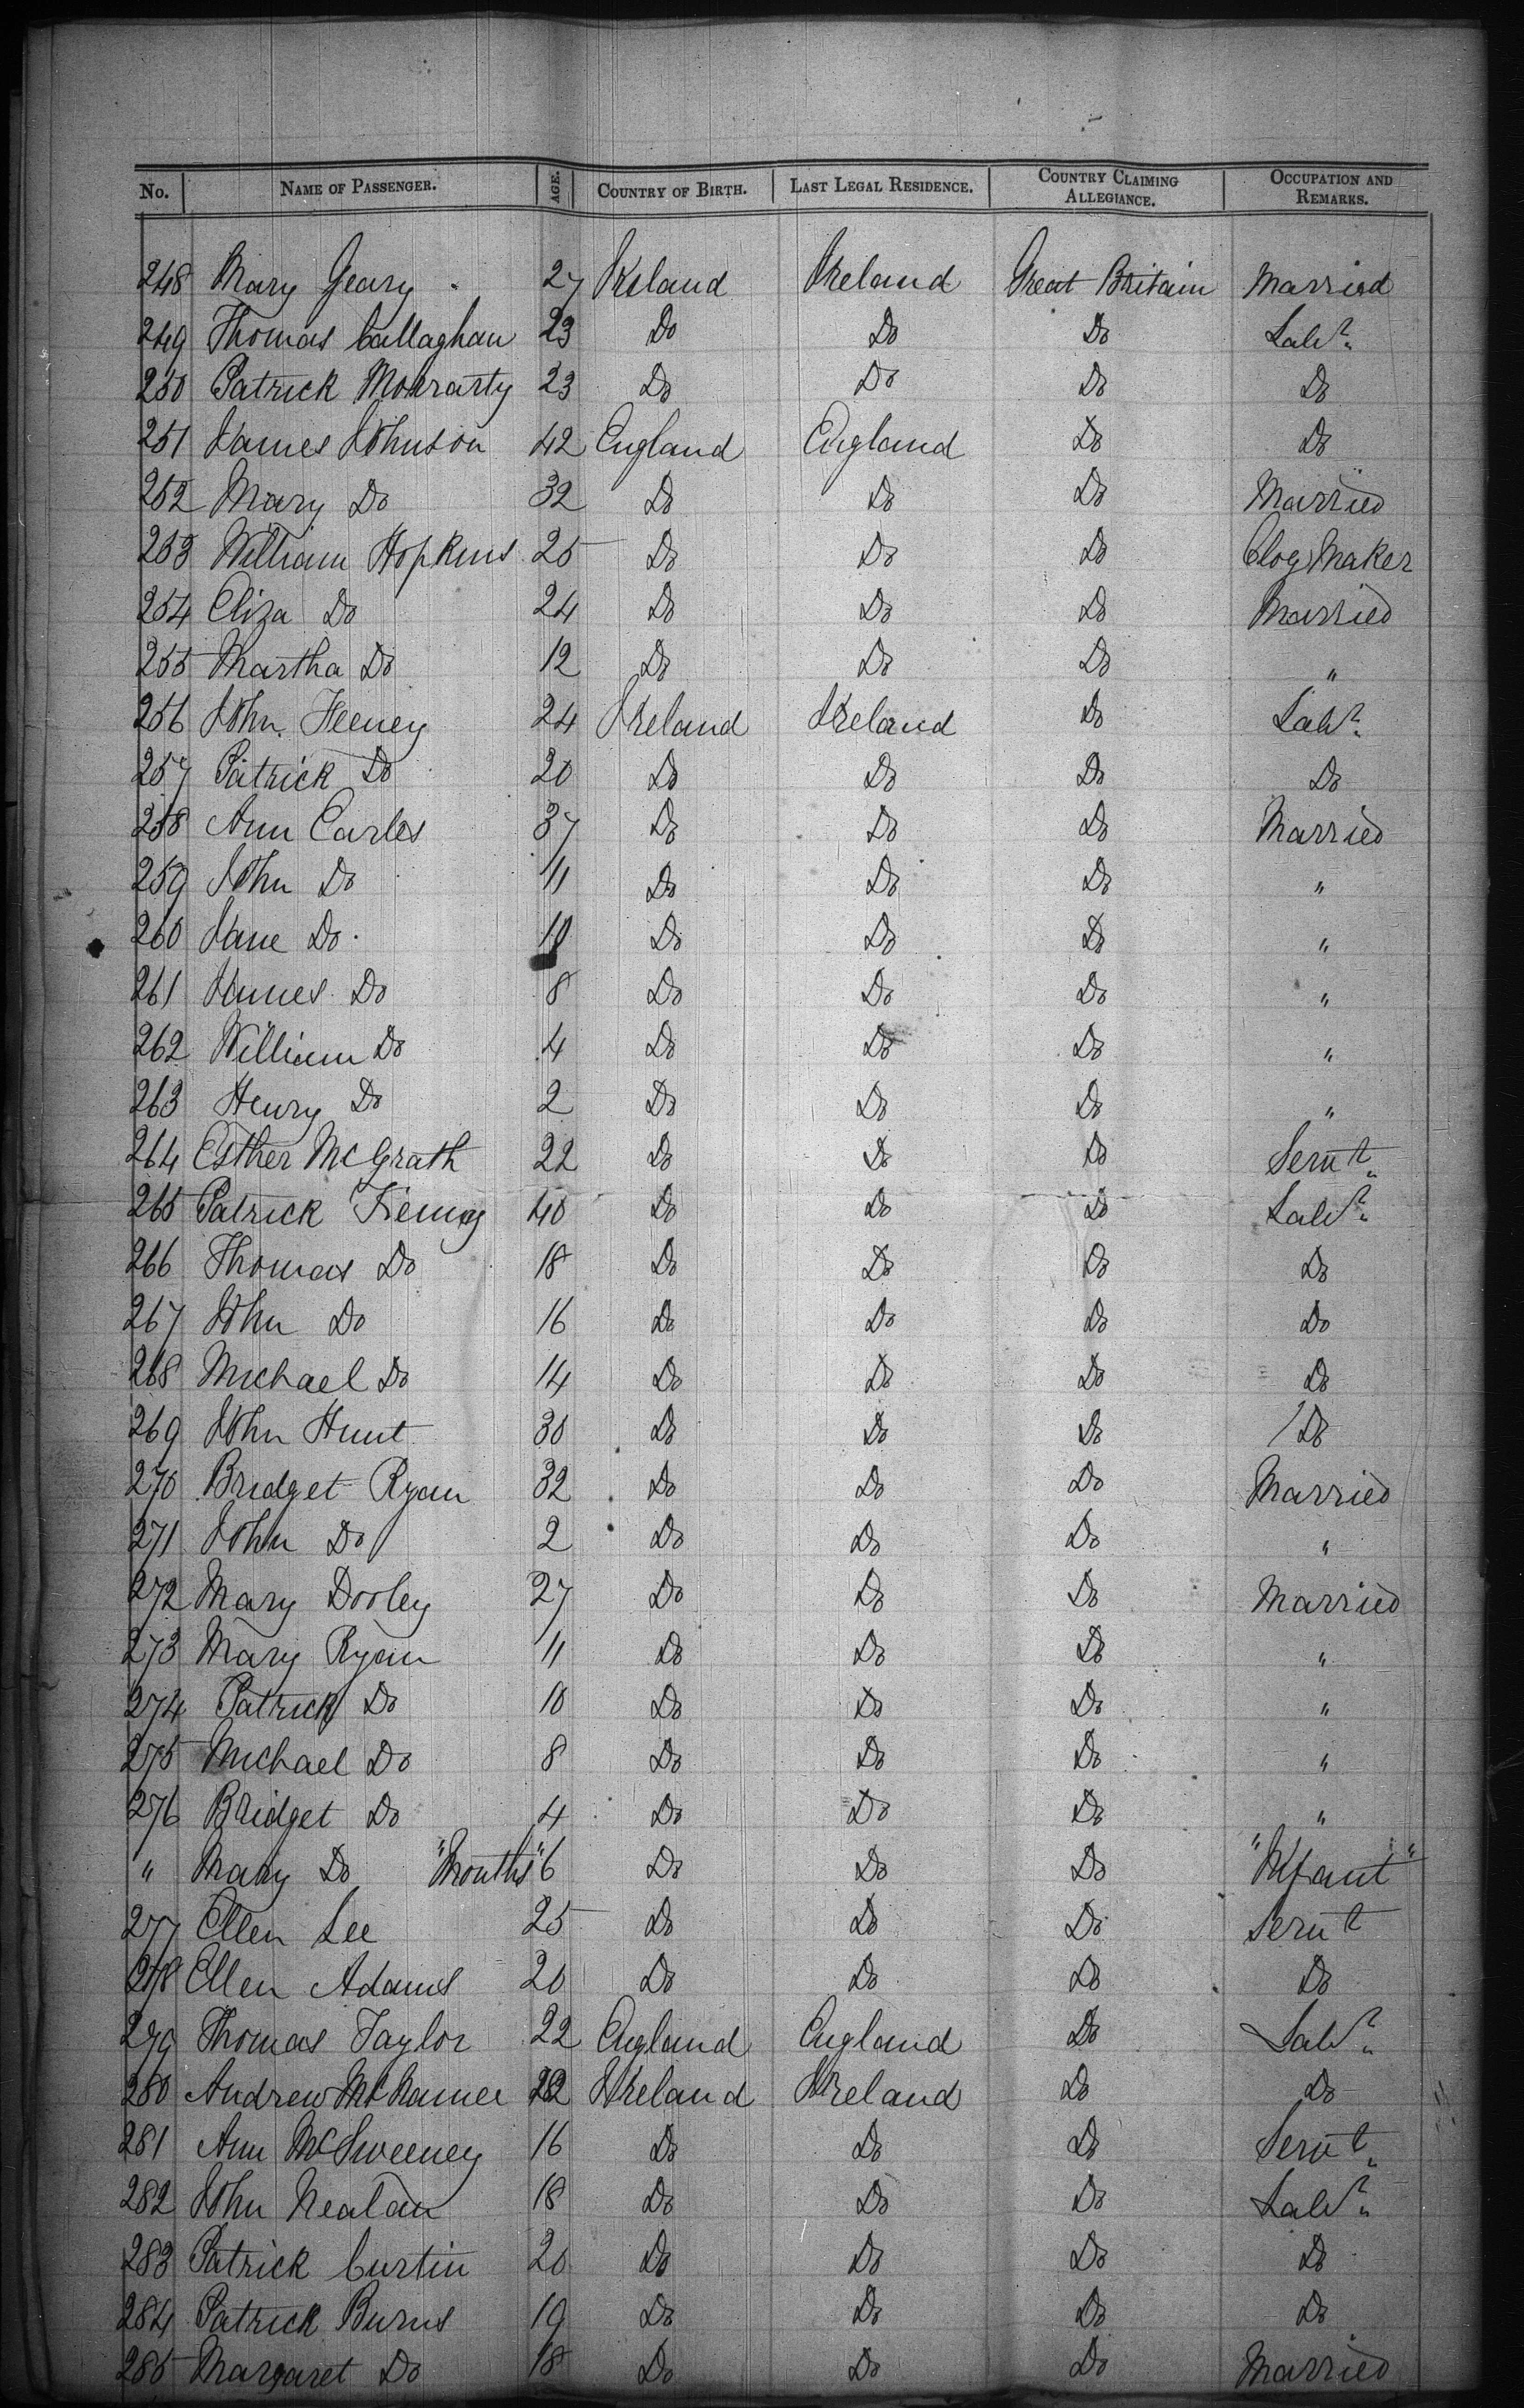 No. NAME OF PASSENGER. AGE. COUNTRY OF BIRTH. LAST LEGAL RESIDENCE. COUNTRY CLAIMING ALLEGIANCE. OCCUPATION AND REMARKS.
248 Mary Geary 27 Ireland Ireland Great Britain Married
249 Thomas Callaghan 23 Do Do Do Labr.
250 Patrick Moriarty 23 Do Do Do Do
251 James Johnson 42 England England Do Do
252 Mary Do 32 Do Do Do Married
253 William Hopkins 25 Do Do Do Clog Maker
254 Eliza Do 24 Do Do Do Married
255 Martha Do 12 Do Do Do "
256 John Feeney 24 Ireland Ireland Do Labr.
257 Patrick Do 20 Do Do Do Do
258 Ann Carles 37 Do Do Do Married
259 John Do 11 Do Do Do "
260 Jane Do 10 Do Do Do "
261 James Do 8 Do Do Do "
262 William Do 4 Do Do Do "
263 Henry Do 2 Do Do Do "
264 Esther McGrath 22 Do Do Do Servt.
265 Patrick 40 Do Do Do Labr.
266 Thomas Do 18 Do Do Do Do
267 John Do 16 Do Do Do Do
268 Michael Do 14 Do Do Do Do
269 John Hunt 30 Do Do Do Do
270 Bridget Ryan 32 Do Do Do Married
271 John Do 2 Do Do Do "
272 Mary Dooley 27 Do Do Do Married
273 Mary Ryan 11 Do Do Do "
274 Patrick Do 10 Do Do Do "
275 Michael Do 8 Do Do Do "
276 Bridget Do 4 Do Do Do "
" Mary Do "Months" 6 Do Do Do "Infant"
277 Ellen Lee 25 Do Do Do Servt
278 Ellen Adams 20 Do Do Do Do
279 Thomas Taylor 22 England England Do Labr.
280 Andrew McNamee 22 Ireland Ireland Do Do
281 Ann McSweeney 16 Do Do Do Servt.
282 John Nealan 18 Do Do Do Labr.
283 Patrick Curtin 20 Do Do Do Do
284 Patrick Burns 19 Do Do Do Do
285 Margaret Do 18 Do Do Do Married